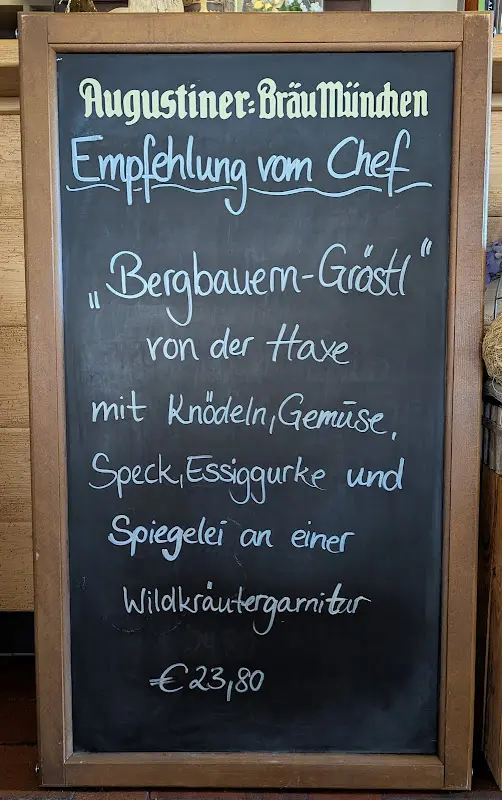 Augustiner-Bräu München
Empfehlung vom Chef
„Bergbauern-Gröstl“
von der Haxe
mit Knödeln, Gemüse,
Speck, Essiggurke und
Spiegelei an einer
Wildkräutergarnitur
€ 23,80